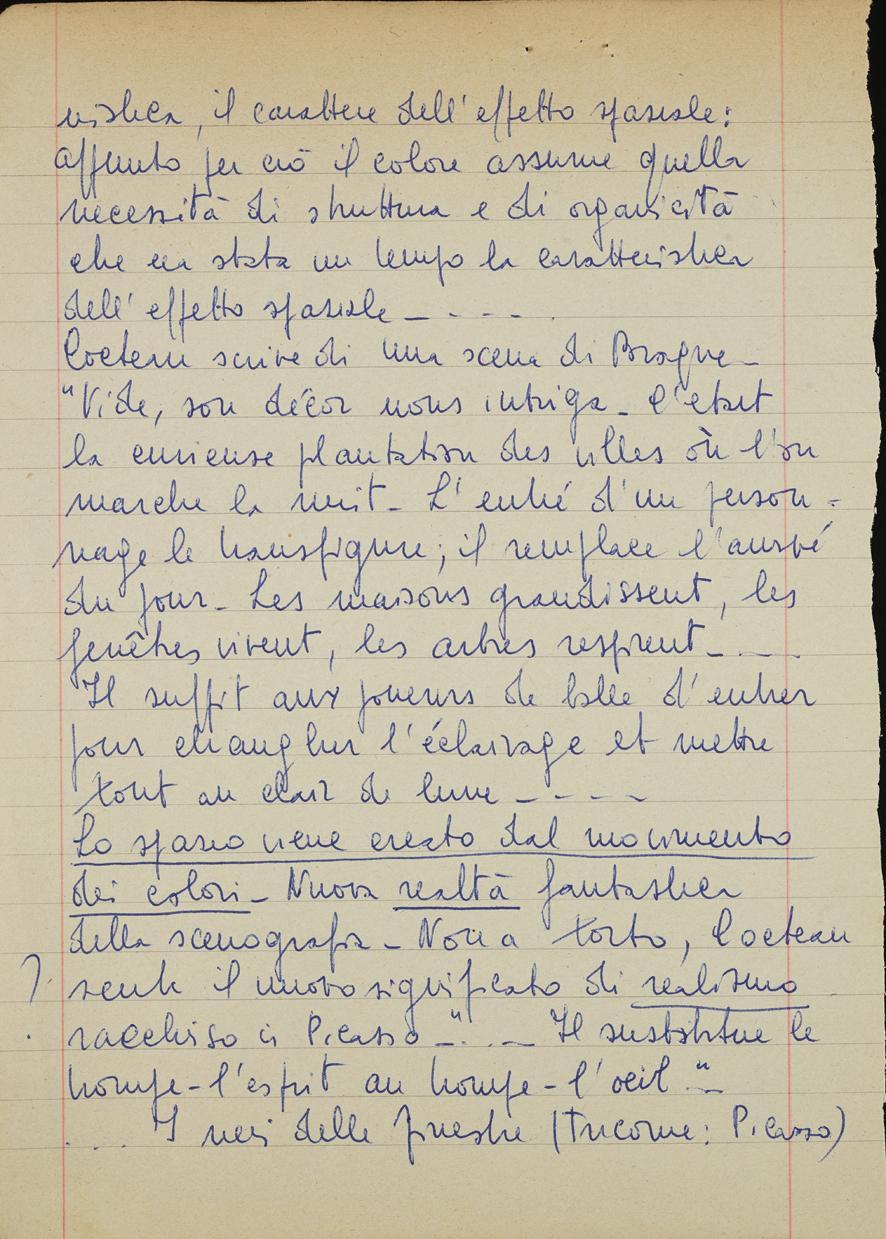 ristica, il carattere dell'effetto spaziale:
appunto per ciò il colore assume quella
necessità di struttura e di organicità
che era stata un tempo la caratteristica
dell'effetto spaziale _ - - - .
Cocteau scrive di una scena di Braque _
"Vide, son décor nous intriga _ C'etait
la curieuse plantation des villes où l'on
marche la nuit _ L'entré d'un person =
nage le transfigure; il remplace l'
du jour _ Les maisons grandissent, les
fenêtres vivent, les arbres respirent _ . _ _
Il suffit aux joueurs de balle d'entrer
pour l'éclairage et mettre
tout au clair de lune _ - - -
Lo spazio viene creato dal movimento
dei colori _ Nuova realtà fantastica
della scenografia _ Non a torto, Cocteau
? sente il nuovo significato di realismo
racchiso in Picasso _" . . _ Il substitue le
trompe-l'esprit au trompe-l'oeil " _
. . . I neri delle finestre (Tricorne: Picasso)